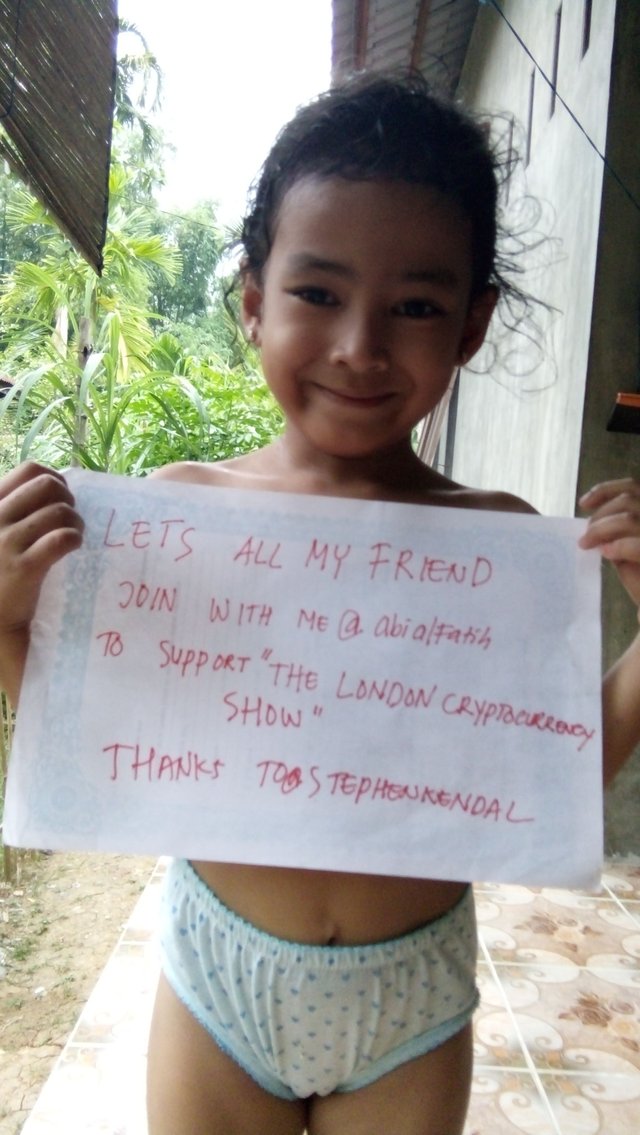 LETS ALL MY FRIEND
JOIN WITH ME @ abialfatih
TO SUPPORT "THE LONDON CRYPTOCURRENCY
SHOW"
THANKS TO@STEPHENKENDAL